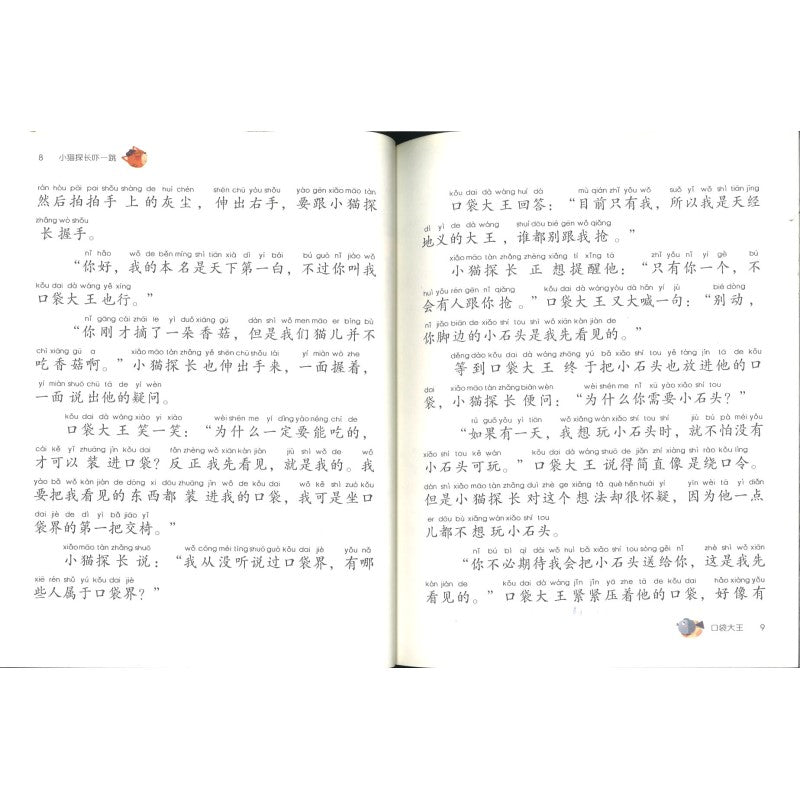 8 小猫探长吓一跳
rán hòu pāi pai shǒu shàng de huī chén shēn chū yòu shǒu yào gēn xiǎo māo tàn
然后拍拍手上的灰尘，伸出右手，要跟小猫探
zhǎng wò shǒu
长握手。
nǐ hǎo wǒ de běn míng shì tiān xià dì yī bái bú guò nǐ jiào wǒ
“你好，我的本名是天下第一白，不过你叫我
kǒu dai dà wáng yě xíng
口袋大王也行。”
nǐ gāng cái zhāi le yì duǒ xiāng gū dàn shì wǒ men māo er bìng bù
“你刚才摘了一朵香菇，但是我们猫儿并不
chī xiāng gū a xiǎo māo tàn zhǎng yě shēn chū shǒu lái yí miàn wò zhe
吃香菇啊。”小猫探长也伸出手来，一面握着，
yí miàn shuō chū tā de yí wèn
一面说出他的疑问。
kǒu dai dà wáng xiào yí xiào wèi shén me yí dìng yào néng chī de
口袋大王笑一笑：“为什么一定要能吃的，
cái kě yǐ zhuāng jìn kǒu dai fǎn zhèng wǒ xiān kàn jiàn jiù shì wǒ de wǒ
才可以装进口袋？反正我先看见，就是我的。我
yào bǎ wǒ kàn jiàn de dōng xi dōu zhuāng jìn wǒ de kǒu dai wǒ kě shì zuò kǒu
要把我看见的东西都装进我的口袋，我可是坐口
dai jiè de dì yī bǎ jiāo yǐ
袋界的第一把交椅。”
xiǎo māo tàn zhǎng shuō wǒ cóng méi tīng shuō guò kǒu dai jiè yǒu nǎ
小猫探长说：“我从没听说过口袋界，有哪
xiē rén shǔ yú kǒu dai jiè
些人属于口袋界？”
kǒu dai dà wáng huí dá mù qián zhǐ yǒu wǒ suǒ yǐ wǒ shì tiān jīng
口袋大王回答：“目前只有我，所以我是天经
dì yì de dà wáng shuí dōu bié gēn wǒ qiǎng
地义的大王，谁都别跟我抢。”
xiǎo māo tàn zhǎng zhèng xiǎng tí xǐng tā zhǐ yǒu nǐ yí gè bú
小猫探长正想提醒他：“只有你一个，不
huì yǒu rén gēn nǐ qiǎng kǒu dai dà wáng yòu dà hǎn yí jù bié dòng
会有人跟你抢。”口袋大王又大喊一句：“别动，
nǐ jiǎo biān de xiǎo shí tou shì wǒ xiān kàn jiàn de
你脚边的小石头是我先看见的。”
děng dào kǒu dai dà wáng zhōng yú bǎ xiǎo shí tou yě fàng jìn tā de kǒu
等到口袋大王终于把小石头也放进他的口
dai xiǎo māo tàn zhǎng biàn wèn wèi shén me nǐ xū yào xiǎo shí tou
袋，小猫探长便问：“为什么你需要小石头？”
rú guǒ yǒu yì tiān wǒ xiǎng wán xiǎo shí tou shí jiù bú pà méi yǒu
“如果有一天，我想玩小石头时，就不怕没有
xiǎo shí tou kě wán kǒu dai dà wáng shuō de jiǎn zhí xiàng shì rào kǒu lìng
小石头可玩。”口袋大王说得简直像是绕口令。
dàn shì xiǎo māo tàn zhǎng duì zhè ge xiǎng fǎ què hěn huái yí yīn wèi tā yì diǎn
但是小猫探长对这个想法却很怀疑，因为他一点
er dōu bù xiǎng wán xiǎo shí tou
儿都不想玩小石头。
nǐ bú bì qī dài wǒ huì bǎ xiǎo shí tou sòng gěi nǐ zhè shì wǒ xiān
“你不必期待我会把小石头送给你，这是我先
kàn jiàn de kǒu dai dà wáng jǐn jǐn yā zhe tā de kǒu dai hǎo xiàng yǒu
看见的。”口袋大王紧紧压着他的口袋，好像有
口袋大王 9